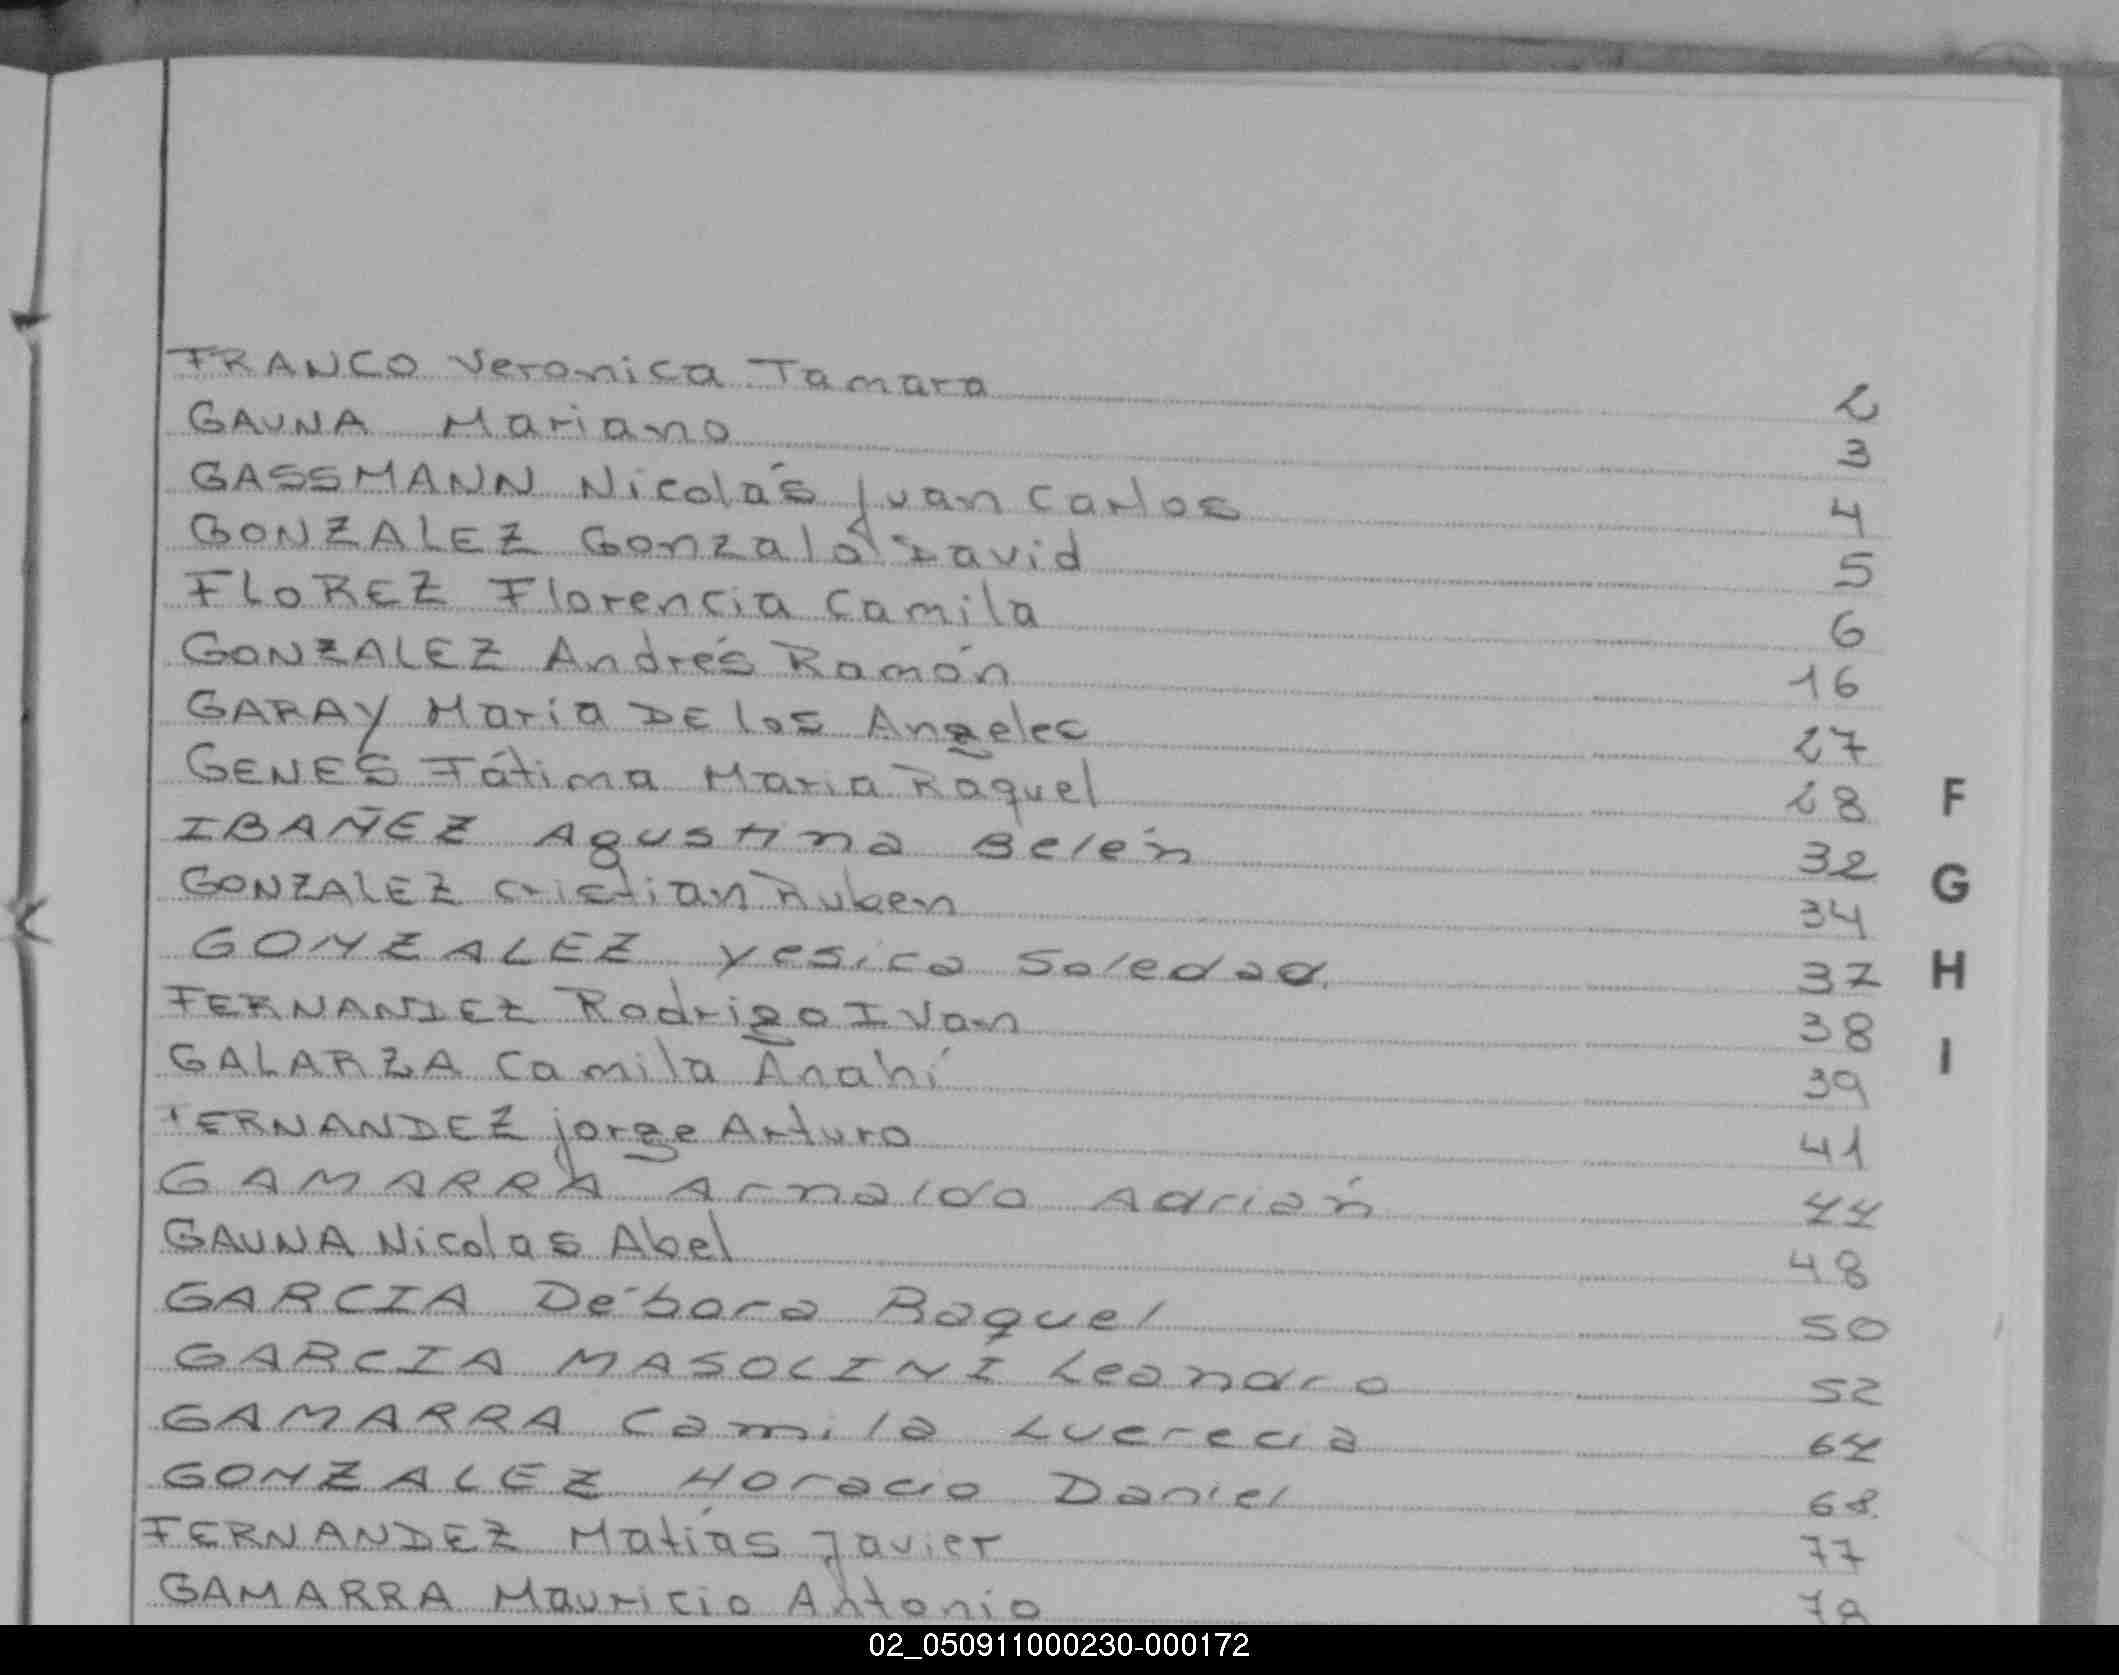 FRANCO Veronica Tamara 2
GAUNA Mariano 3
GASSMANN Nicolás Juan Carlos 4
GONZALEZ Gonzalo David 5
FLOREZ Florencia Camila 6
GONZALEZ Andrés Ramón 16
GARAY Maria DE los Angeles 27
GENES Fátima Maria Raquel 28
F
IBAÑEZ Agustina Belén 32
G
GONZALEZ Cristian Ruben 34
GONZALEZ Yesica Soledad 37
H
FERNANDEZ Rodrigo Ivan 38
I
GALARZA Camila Anahí 39
FERNANDEZ Jorge Arturo 41
GAMARRA Arnaldo Adrián 44
GAUNA Nicolas Abel 48
GARCIA Débora Raquel 50
GARCIA MASOLINI Leandro 52
GAMARRA Camila Lucrecia 64
GONZALEZ Horacio Daniel 68
FERNANDEZ Matías Javier 77
GAMARRA Mauricio Antonio 78
02_050911000230-000172